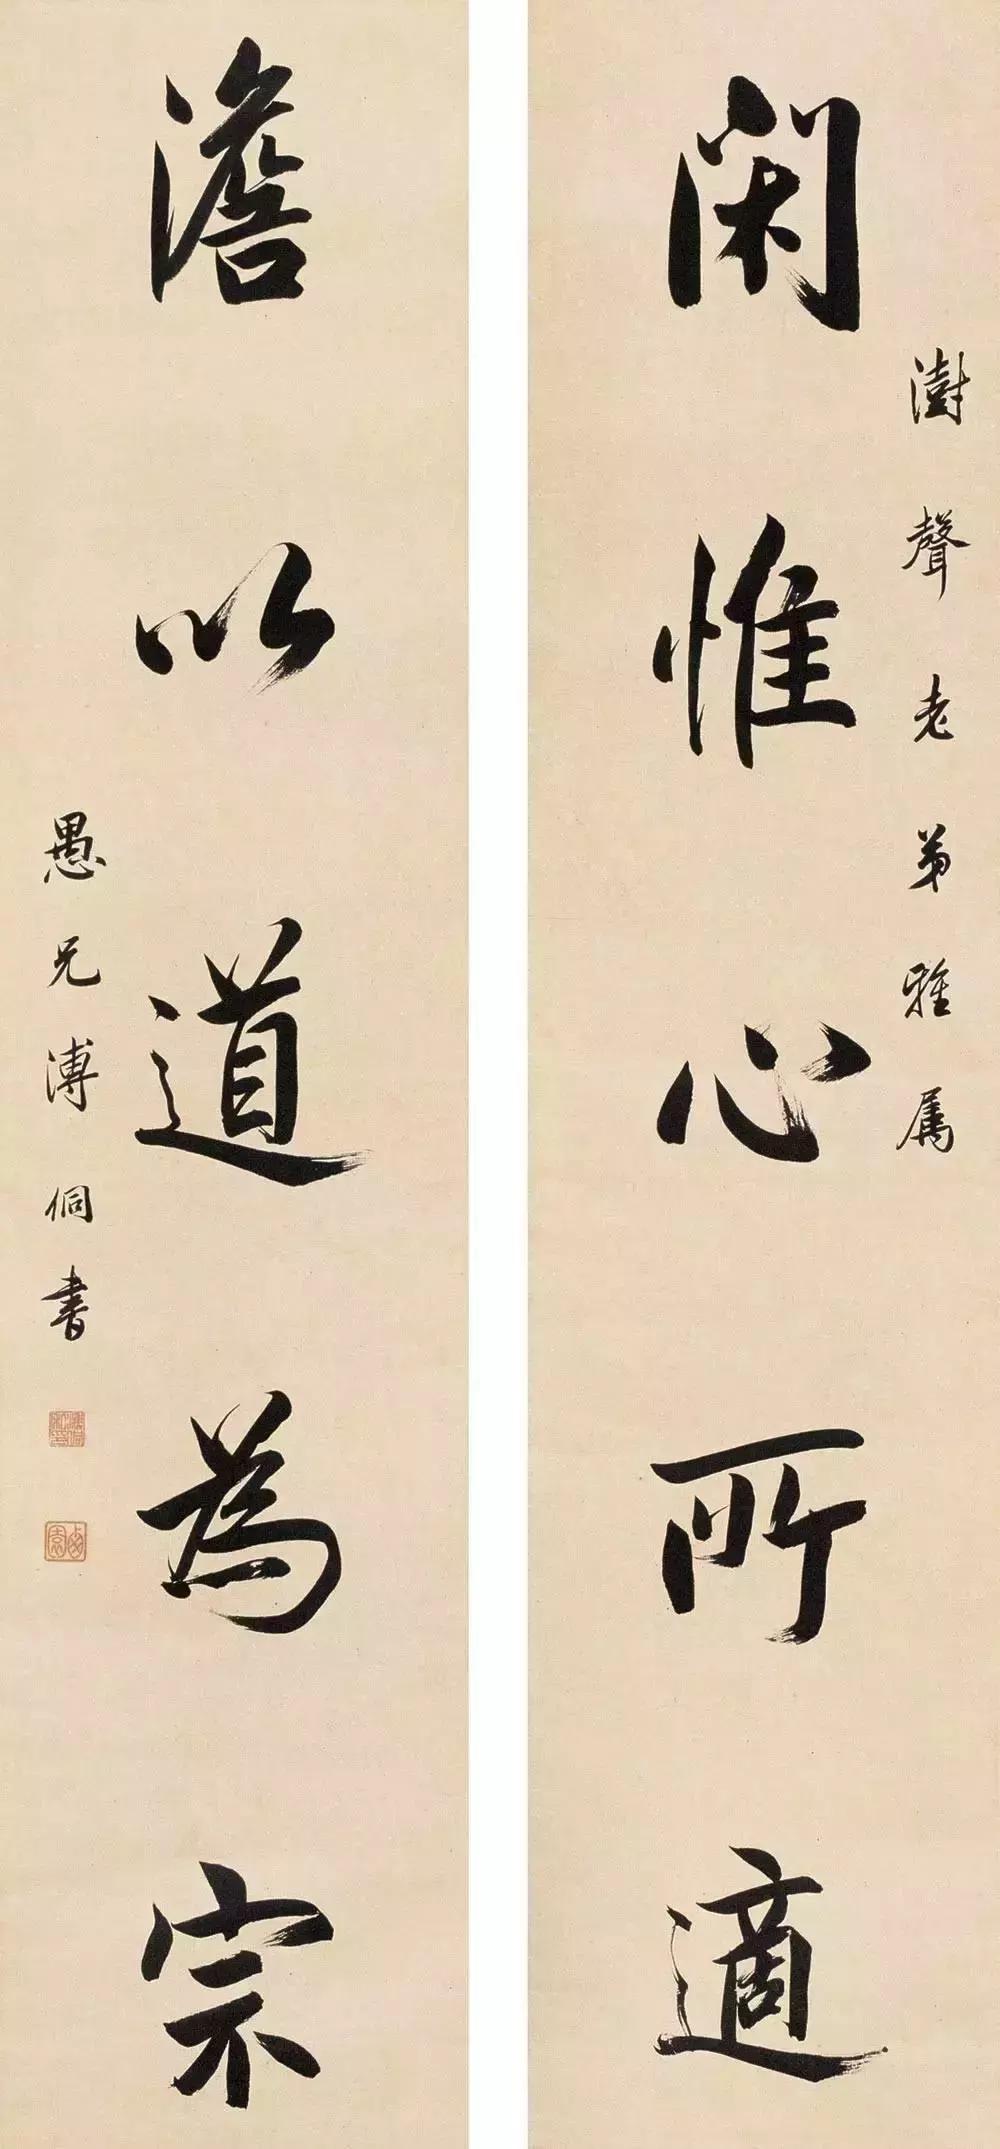 澍聲老弟雅属
閑惟心所適
澹以道為宗
愚兄溥侗書